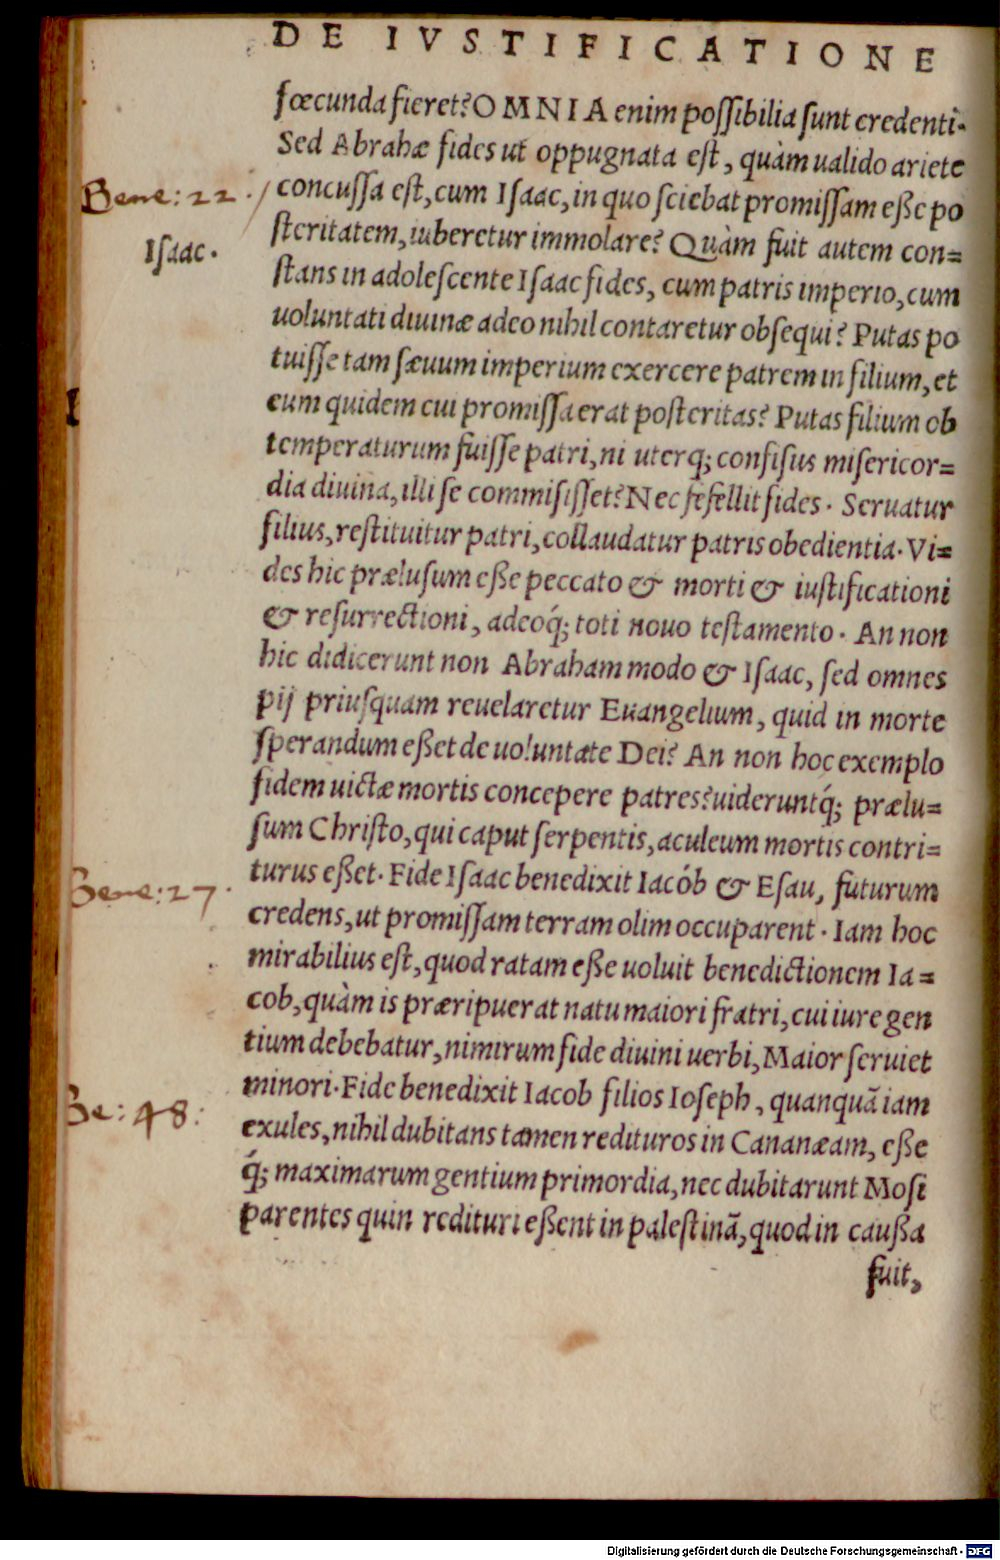 DE IVSTIFICATIONE
fœcunda fieret? OMNIA enim poſſibilia ſunt credenti.
Sed Abrahæ fides ut oppugnata eſt, quàm ualido ariete
Gene: 22.
concuſſa eſt, cum Iſaac, in quo ſciebat promiſſam eße po
Iſaac.
ſteritatem, iuberetur immolare? Quàm fuit autem con=
ſtans in adoleſcente Iſaac fides, cum patris imperio, cum
uoluntati diuinæ adeo nihil contaretur obſequi? Putas po
tuiſſe tam ſæuum imperium exercere patrem in filium, et
eum quidem cui promiſſa erat poſteritas? Putas filium ob
temperaturum fuiſſe patri, ni uterq; confiſus miſericor=
dia diuina, illi ſe commiſiſſet? Nec fefellit fides. Seruatur
filius, reſtituitur patri, collaudatur patris obedientia. Vi=
des hic præluſum eße peccato & morti & iuſtificationi
& reſurrectioni, adeoq́; toti nouo teſtamento. An non
hic didicerunt non Abraham modo & Iſaac, ſed omnes
pij priuſquam reuelaretur Euangelium, quid in morte
ſperandum eßet de uoluntate Dei? An non hoc exemplo
fidem uictæ mortis concepere patres? uideruntq́; prælu=
ſum Chriſto, qui caput ſerpentis, aculeum mortis contri=
turus eßet. Fide Iſaac benedixit Iacób & Eſau, futurum
Gene: 27.
credens, ut promiſſam terram olim occuparent. Iam hoc
mirabilius eſt, quod ratam eße uoluit benedictionem Ia=
cob, quàm is præripuerat natu maiori fratri, cui iure gen
tium debebatur, nimirum fide diuini uerbi, Maior ſeruiet
minori. Fide benedixit Iacob filios Ioſeph, quanquã iam
Ge: 48:
exules, nihil dubitans tamen redituros in Cananæam, eße
q́; maximarum gentium primordia, nec dubitarunt Moſi
parentes quin redituri eßent in paleſtinã, quod in cauſſa
fuit,
Digitalisierung gefördert durch die Deutsche Forschungsgemeinschaft - DFG